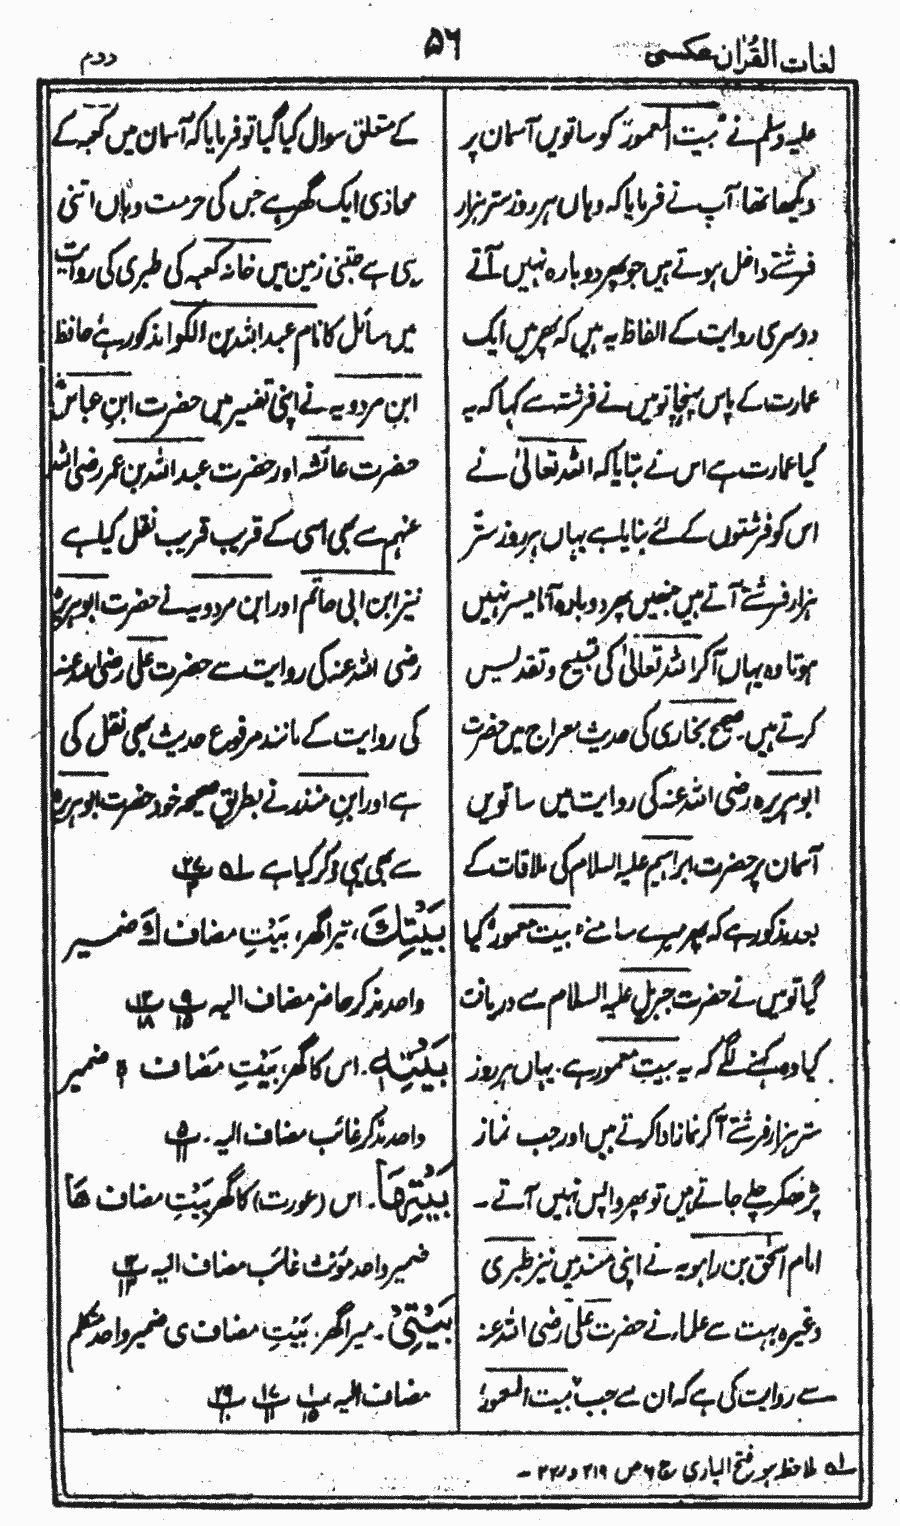 لغات القرآن عکسی
۵۶
دوم
علیہ وسلم نے "بیت المعمور" کو ساتویں آسمان پر
دیکھا تھا، آپ نے فرمایا کہ وہاں ہر روز ستر ہزار
فرشتے داخل ہوتے ہیں جو پھر دوبارہ نہیں آتے
دوسری روایت کے الفاظ یہ ہیں کہ پھر میں ایک
عمارت کے پاس پہنچا تو میں نے فرشتہ سے کہا کہ یہ
کیا عمارت ہے اس نے بتایا کہ اللہ تعالیٰ نے
اس کو فرشتوں کے لئے بنایا ہے یہاں ہر روز ستّر
ہزار فرشتے آتے ہیں جنھیں پھر دوبارہ آنا میسر نہیں
ہوتا وہ یہاں آکر اللہ تعالیٰ کی تسبیح و تقدیس
کرتے ہیں۔ صحیح بخاری کی حدیث معراج میں حضرت
ابوہریرہ رضی اللہ عنہ کی روایت میں ساتویں
آسمان پر حضرت ابراہیم علیہ السلام کی ملاقات کے
بعد مذکور ہے کہ پھر میرے سامنے "بیت معمور" کیا
گیا تو میں نے حضرت جبریل علیہ السلام سے دریافت
کیا وہ کہنے لگے کہ یہ بیت معمور ہے۔ یہاں ہر روز
ستر ہزار فرشتے آکر نماز ادا کرتے ہیں اور جب نماز
پڑھ کر چلے جاتے ہیں تو پھر واپس نہیں آتے۔
امام اسحٰق بن راہویہ نے اپنی مسند میں نیز طبری
وغیرہ بہت سے علماء نے حضرت علی رضی اللہ عنہ
سے روایت کی ہے کہ ان سے جب "بیت المعمور"
کے متعلق سوال کیا گیا تو فرمایا کہ آسمان میں کعبہ کے
محاذی ایک گھر ہے جس کی حرمت وہاں اتنی
ہی ہے جتنی زمین میں خانہ کعبہ کی طبری کی روایت
میں سائل کا نام عبداللہ بن الکوا مذکور ہے حافظ
ابن مردویہ نے اپنی تفسیر میں حضرت ابن عباسؓ
حضرت عائشہ اور حضرت عبداللہ بن عمر رضی اللہ
عنہم سے بھی اسی کے قریب قریب نقل کیا ہے
نیز ابن ابی حاتم اور ابن مردویہ نے حضرت ابوہریرہ
رضی اللہ عنہ کی روایت سے حضرت علی رضی اللہ عنہ
کی روایت کے مانند مرفوع حدیث بھی نقل کی
ہے اور ابن منذر نے بطریق صحیحہ خود حضرت ابوہریرہ
سے بھی یہی ذکر کیا ہے
بَيْتِكَ، تیرا گھر، بَیْتِ مضاف كَ ضمیر
واحد مذکر حاضر مضاف الیہ
بَيْتِهٖ۔ اس کا گھر، بَیْتِ مضاف ہٖ ضمیر
واحد مذکر غائب مضاف الیہ۔
بَيْتِهَا۔ اس (عورت) کا گھر بَیْتِ مضاف هَا
ضمیر واحد مؤنث غائب مضاف الیہ
بَيْتِيَ۔ میرا گھر۔ بَیْتِ مضاف ی ضمیر واحد متکلم
مضاف الیہ
ملاحظہ ہو فتح الباری ج ۶ ص ۲۱۹